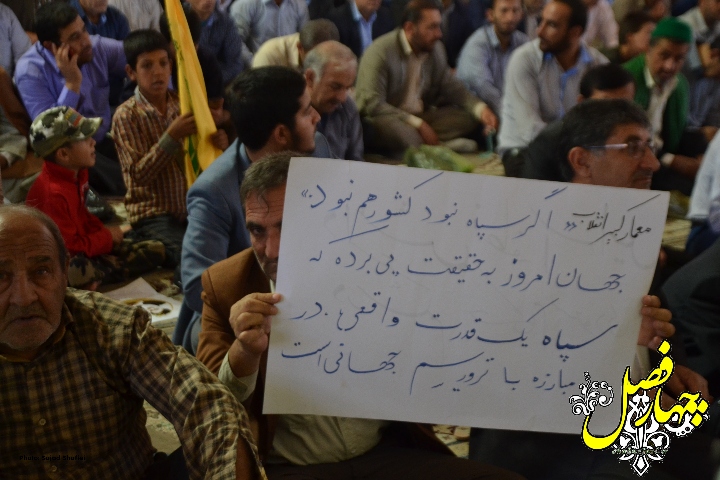 معمار کبیر انقلاب «اگر سپاه نبود کشور هم نبود:»
جهان امروز به حقیقت پی برده که
سپاه یک قدرت واقعی در
مبارزه با تروریسم جهانی است
چهار فصل